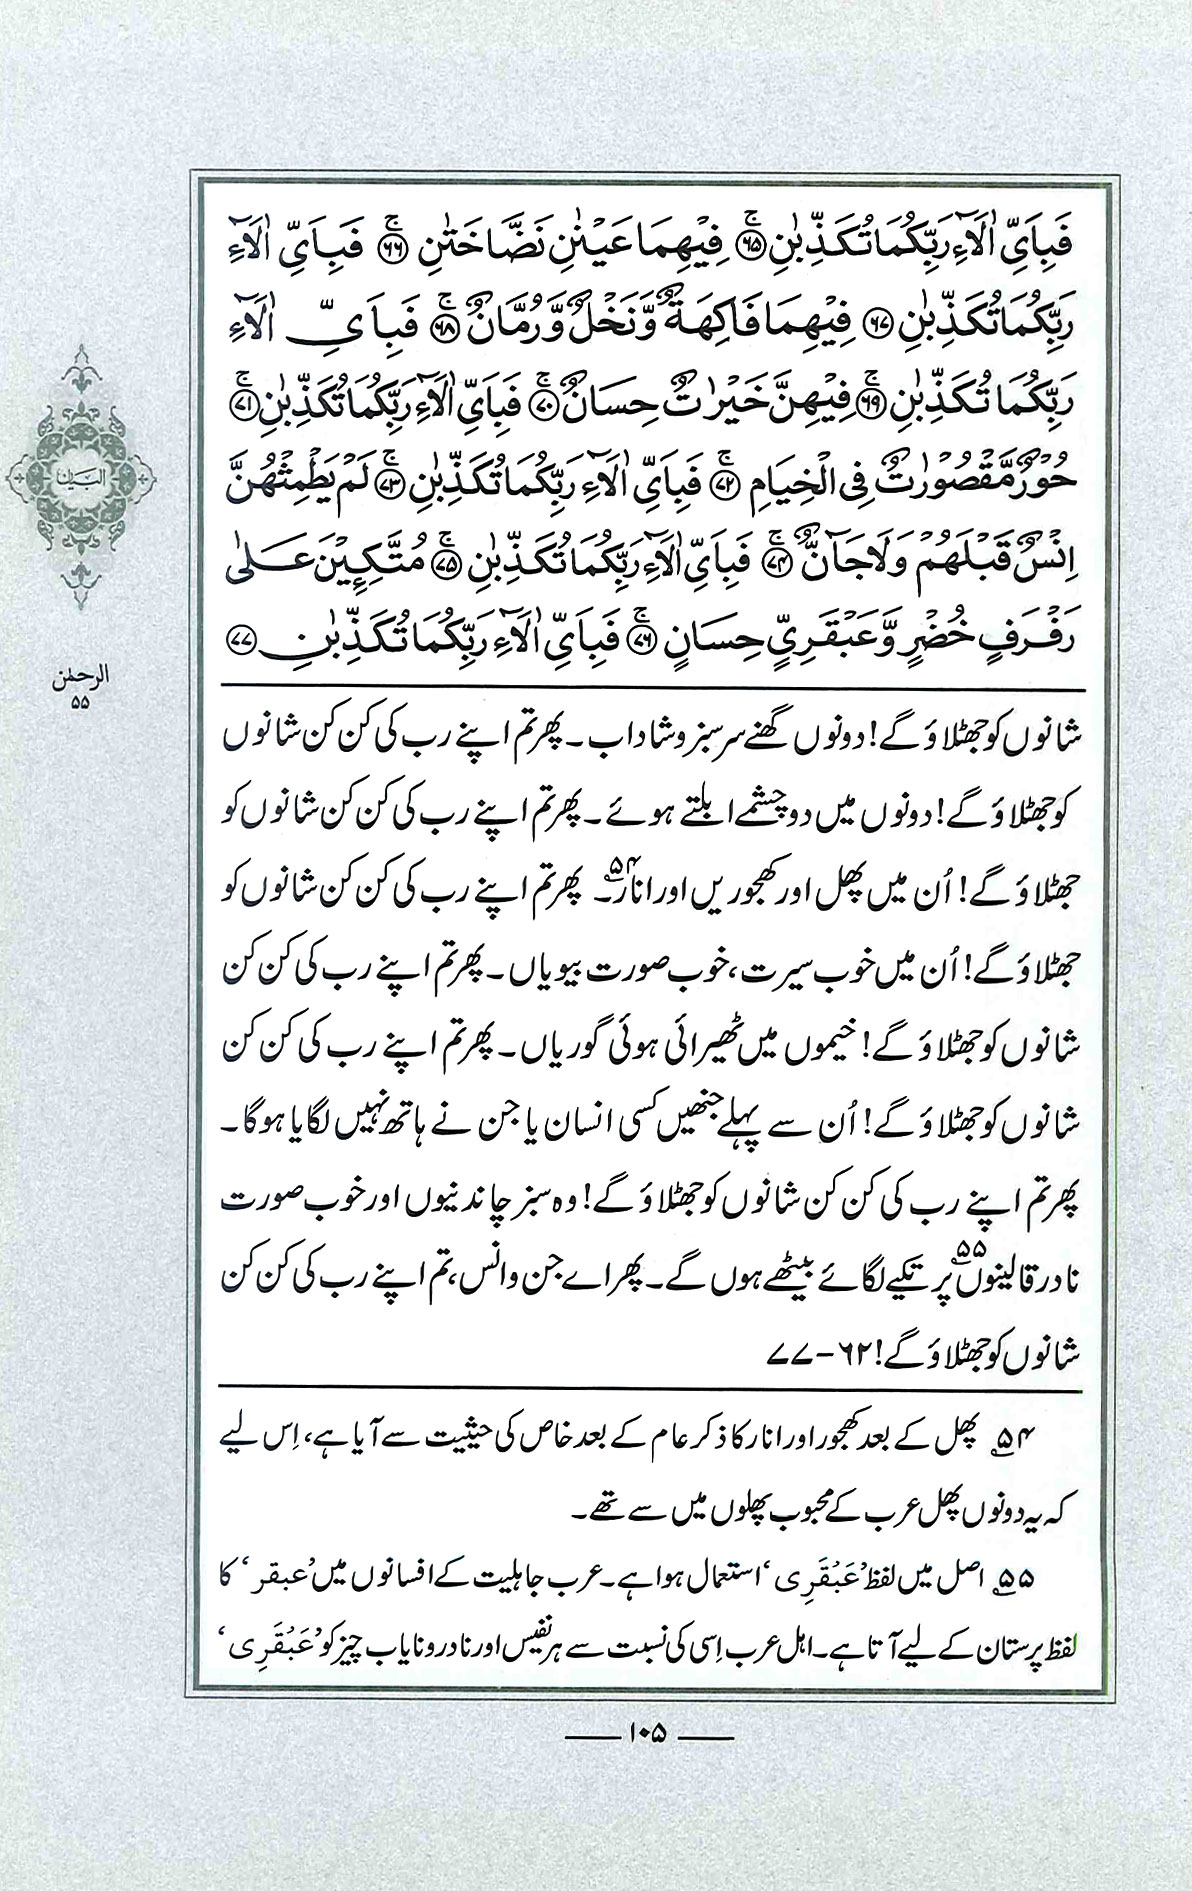 فَبِاَیِّ اٰلَآءِ رَبِّکُمَا تُکَذِّبٰنِ ﴿۶۵﴾ۚ فِیْهِمَا عَیْنٰنِ نَضَّاخَتٰنِ ﴿۶۶﴾ۚ فَبِاَیِّ اٰلَآءِ
رَبِّکُمَا تُکَذِّبٰنِ ﴿۶۷﴾ فِیْهِمَا فَاکِهَةٌ وَّنَخْلٌ وَّرُمَّانٌ ﴿۶۸﴾ۚ فَبِاَیِّ اٰلَآءِ
رَبِّکُمَا تُکَذِّبٰنِ ﴿۶۹﴾ۚ فِیْهِنَّ خَیْرٰتٌ حِسَانٌ ﴿۷۰﴾ۚ فَبِاَیِّ اٰلَآءِ رَبِّکُمَا تُکَذِّبٰنِ ﴿۷۱﴾ۚ
حُوْرٌ مَّقْصُوْرٰتٌ فِی الْخِیَامِ ﴿۷۲﴾ۚ فَبِاَیِّ اٰلَآءِ رَبِّکُمَا تُکَذِّبٰنِ ﴿۷۳﴾ۚ لَمْ یَطْمِثْهُنَّ
اِنْسٌ قَبْلَهُمْ وَلَا جَآنٌّ ﴿۷۴﴾ۚ فَبِاَیِّ اٰلَآءِ رَبِّکُمَا تُکَذِّبٰنِ ﴿۷۵﴾ۚ مُتَّکِـِٕیْنَ عَلٰی
رَفْرَفٍ خُضْرٍ وَّعَبْقَرِیٍّ حِسَانٍ ﴿۷۶﴾ۚ فَبِاَیِّ اٰلَآءِ رَبِّکُمَا تُکَذِّبٰنِ ﴿۷۷﴾
البیان
الرحمٰن
۵۵
شانوں کو جھٹلاؤ گے! دونوں گھنے سرسبز و شاداب۔ پھر تم اپنے رب کی کن کن شانوں
کو جھٹلاؤ گے! دونوں میں دو چشمے ابلتے ہوئے۔ پھر تم اپنے رب کی کن کن شانوں کو
جھٹلاؤ گے! اُن میں پھل اور کھجوریں اور انار۵۴۔ پھر تم اپنے رب کی کن کن شانوں کو
جھٹلاؤ گے! اُن میں خوب سیرت، خوب صورت بیویاں۔ پھر تم اپنے رب کی کن کن
شانوں کو جھٹلاؤ گے! خیموں میں ٹھیرائی ہوئی گوریاں۔ پھر تم اپنے رب کی کن کن
شانوں کو جھٹلاؤ گے! اُن سے پہلے جنھیں کسی انسان یا جن نے ہاتھ نہیں لگایا ہوگا۔
پھر تم اپنے رب کی کن کن شانوں کو جھٹلاؤ گے! وہ سبز چاندنیوں اور خوب صورت
نادر قالینوں۵۵ پر تکیے لگائے بیٹھے ہوں گے۔ پھر اے جن و انس، تم اپنے رب کی کن کن
شانوں کو جھٹلاؤ گے! ۶۲-۷۷
۵۴ پھل کے بعد کھجور اور انار کا ذکر عام کے بعد خاص کی حیثیت سے آیا ہے، اِس لیے
کہ یہ دونوں پھل عرب کے محبوب پھلوں میں سے تھے۔
۵۵ اصل میں لفظ ’عَبْقَرِی‘ استعمال ہوا ہے۔ عرب جاہلیت کے افسانوں میں ’عبقر‘ کا
لفظ پرستان کے لیے آتا ہے۔ اہل عرب اِسی کی نسبت سے ہر نفیس اور نادر و نایاب چیز کو ’عَبْقَرِی‘
۱۰۵